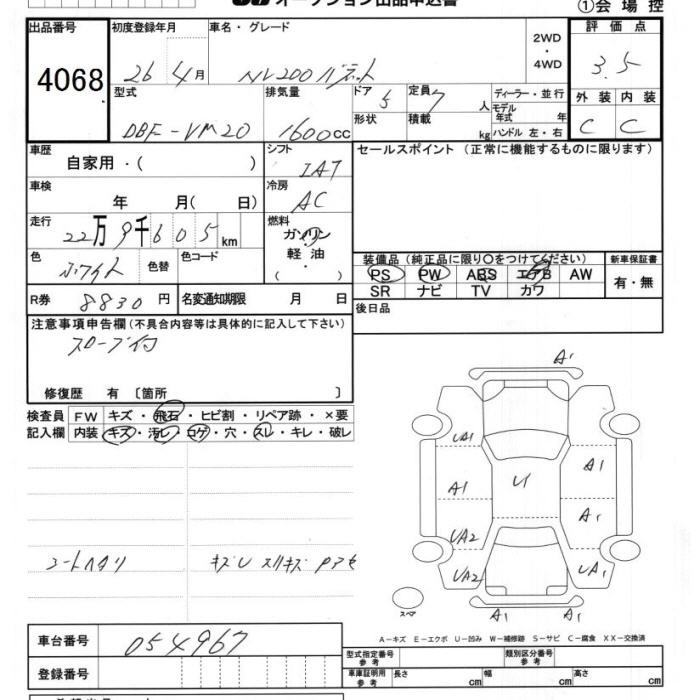 オークション出品申込書
①会場控
出品番号 初度登録年月 車名・グレード 2WD ・ 4WD 評価点
4068 26年4月 NV200バネット 3.5
型式 排気量 ドア 5 定員 7人 ディーラー・並行 外装 内装
DBF-VM20 1600cc 形状 積載 kg モデル年式 年 ハンドル 左・右 C C
車歴 自家用・( ) シフト IAT セールスポイント(正常に機能するものに限ります)
車検 年 月( 日) 冷房 AC
走行 22万9千605km 燃料 ガソリン 軽油 ( )
色 ホワイト 色替 色コード 装備品(純正品に限り○をつけてください) 新車保証書
PS PW ABS エアB AW 有・無
R券 8830円 名変通知期限 月 日 SR ナビ TV カワ
後日品
注意事項申告欄(不具合内容等は具体的に記入して下さい)
スロープ付
修復歴 有 〔箇所 〕
検査員 FW キズ・飛石・ヒビ割・リペア跡・×要
記入欄 内装 キズ・汚レ・コゲ・穴・スレ・キレ・破レ
A1
UA1 A1
A1 U1 A1
UA2
UA2 UA1
A1 A1
シートヘタリ キズU スリキズ
スペア
A-キズ E-エクボ U-凹み W-補修跡 S-サビ C-腐食 XX-交換済
車台番号 054967 型式指定番号 参考 類別区分番号 参考
登録番号 車庫証明用 参考 長さ cm 幅 cm 高さ cm